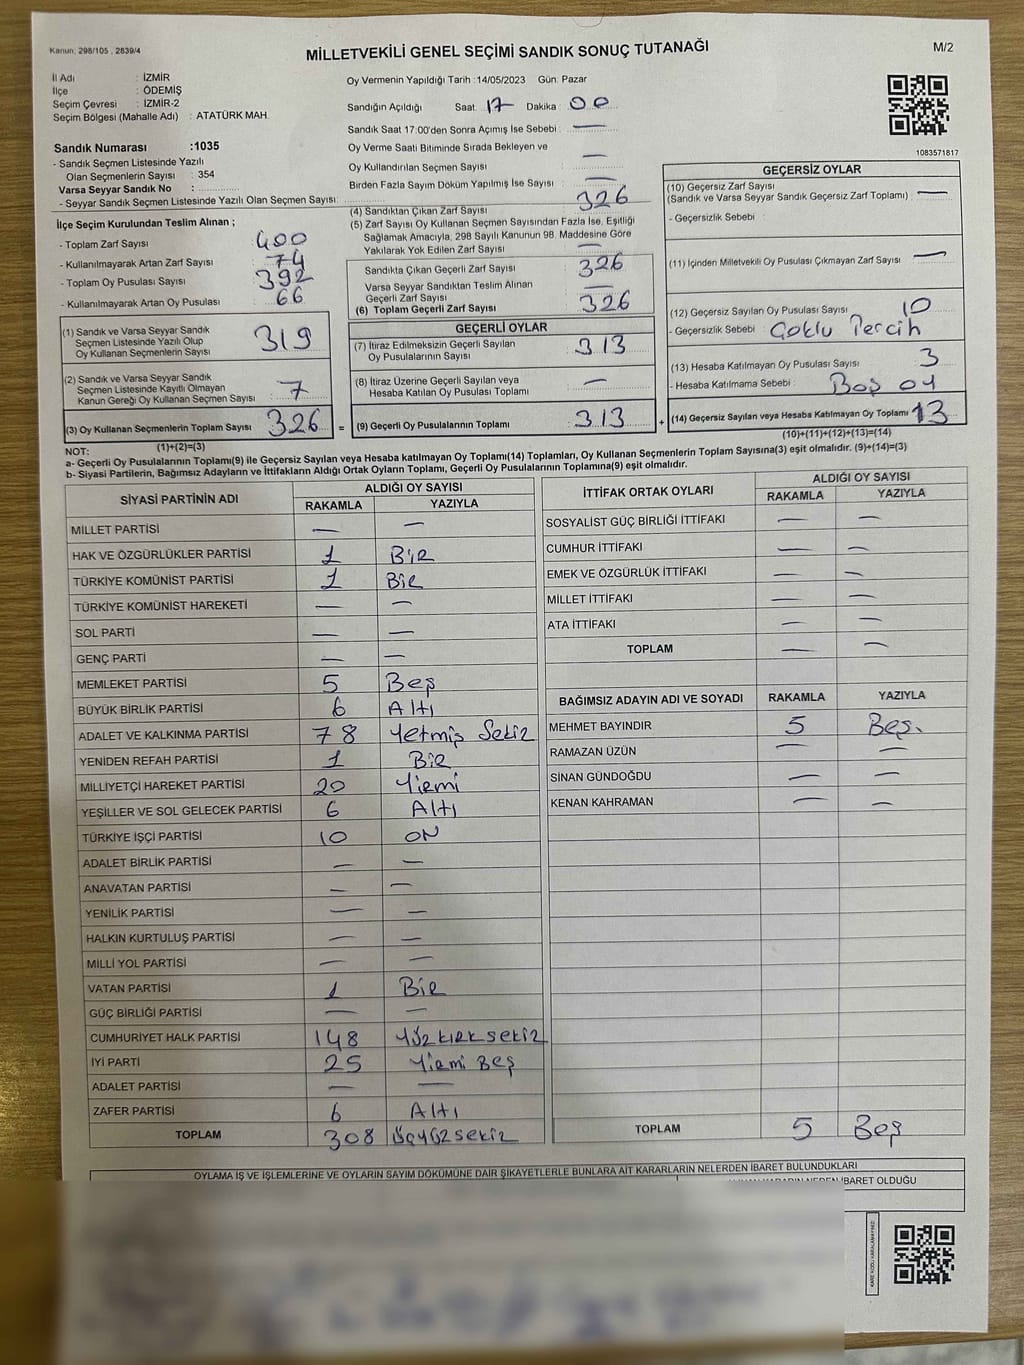 Kanun: 298/105 , 2839/4
MİLLETVEKİLİ GENEL SEÇİMİ SANDIK SONUÇ TUTANAĞI
M/2
İl Adı : İZMİR
İlçe : ÖDEMİŞ
Seçim Çevresi : İZMİR-2
Seçim Bölgesi (Mahalle Adı) : ATATÜRK MAH.
Sandık Numarası :1035
- Sandık Seçmen Listesinde Yazılı
Olan Seçmenlerin Sayısı : 354
Varsa Seyyar Sandık No :
- Seyyar Sandık Seçmen Listesinde Yazılı Olan Seçmen Sayısı :
Oy Vermenin Yapıldığı Tarih :14/05/2023 Gün: Pazar
Sandığın Açıldığı Saat: 17 Dakika : 00
Sandık Saat 17:00'den Sonra Açımış İse Sebebi : —
Oy Verme Saati Bitiminde Sırada Bekleyen ve
Oy Kullandırılan Seçmen Sayısı : —
Birden Fazla Sayım Döküm Yapılmış İse Sayısı : —
1083571817
İlçe Seçim Kurulundan Teslim Alınan ;
- Toplam Zarf Sayısı : 400
- Kullanılmayarak Artan Zarf Sayısı : 74
- Toplam Oy Pusulası Sayısı : 392
- Kullanılmayarak Artan Oy Pusulası : 66
(1) Sandık ve Varsa Seyyar Sandık
Seçmen Listesinde Yazılı Olup
Oy Kullanan Seçmenlerin Sayısı : 319
(2) Sandık ve Varsa Seyyar Sandık
Seçmen Listesinde Kayıtlı Olmayan
Kanun Gereği Oy Kullanan Seçmen Sayısı : 7
(3) Oy Kullanan Seçmenlerin Toplam Sayısı 326 =
(1)+(2)=(3)
(4) Sandıktan Çıkan Zarf Sayısı : 326
(5) Zarf Sayısı Oy Kullanan Seçmen Sayısından Fazla İse, Eşitliği
Sağlamak Amacıyla, 298 Sayılı Kanunun 98. Maddesine Göre
Yakılarak Yok Edilen Zarf Sayısı : —
Sandıkta Çıkan Geçerli Zarf Sayısı : 326
Varsa Seyyar Sandıktan Teslim Alınan
Geçerli Zarf Sayısı : —
(6) Toplam Geçerli Zarf Sayısı : 326
GEÇERLİ OYLAR
(7) İtiraz Edilmeksizin Geçerli Sayılan
Oy Pusulalarının Sayısı : 313
(8) İtiraz Üzerine Geçerli Sayılan veya
Hesaba Katılan Oy Pusulası Toplamı : —
(9) Geçerli Oy Pusulalarının Toplamı : 313 +
GEÇERSİZ OYLAR
(10) Geçersiz Zarf Sayısı
(Sandık ve Varsa Seyyar Sandık Geçersiz Zarf Toplamı) : —
- Geçersizlik Sebebi :
(11) İçinden Milletvekili Oy Pusulası Çıkmayan Zarf Sayısı : —
(12) Geçersiz Sayılan Oy Pusulası Sayısı : 10
- Geçersizlik Sebebi : Çoklu Tercih
(13) Hesaba Katılmayan Oy Pusulası Sayısı : 3
- Hesaba Katılmama Sebebi : Boş oy
(14) Geçersiz Sayılan veya Hesaba Katılmayan Oy Toplamı : 13
(10)+(11)+(12)+(13)=(14)
NOT:
a- Geçerli Oy Pusulalarının Toplamı(9) ile Geçersiz Sayılan ve Hesaba Katılmayan oy Toplamı(14) Toplamları, Oy Kullanan Seçmenlerin Toplam Sayısına(3) eşit olmalıdır. (9)+(14)=(3)
b- Siyasi Partilerin, Bağımsız Adayların ve İttifakların Aldığı Ortak Oyların Toplamı, Geçerli Oy Pusulalarının Toplamına(9) eşit olmalıdır.
SİYASİ PARTİNİN ADI ALDIĞI OY SAYISI
RAKAMLA YAZIYLA
MİLLET PARTİSİ — —
HAK VE ÖZGÜRLÜKLER PARTİSİ 1 Bir
TÜRKİYE KOMÜNİST PARTİSİ 1 Bir
TÜRKİYE KOMÜNİST HAREKETİ — —
SOL PARTİ — —
GENÇ PARTİ — —
MEMLEKET PARTİSİ 5 Beş
BÜYÜK BİRLİK PARTİSİ 6 Altı
ADALET VE KALKINMA PARTİSİ 78 Yetmiş Sekiz
YENİDEN REFAH PARTİSİ 1 Bir
MİLLİYETÇİ HAREKET PARTİSİ 20 Yirmi
YEŞİLLER VE SOL GELECEK PARTİSİ 6 Altı
TÜRKİYE İŞÇİ PARTİSİ 10 ON
ADALET BİRLİK PARTİSİ — —
ANAVATAN PARTİSİ — —
YENİLİK PARTİSİ — —
HALKIN KURTULUŞ PARTİSİ — —
MİLLİ YOL PARTİSİ — —
VATAN PARTİSİ 1 Bir
GÜÇ BİRLİĞİ PARTİSİ — —
CUMHURİYET HALK PARTİSİ 148 Yüzkırksekiz
İYİ PARTİ 25 Yirmi Beş
ADALET PARTİSİ — —
ZAFER PARTİSİ 6 Altı
TOPLAM 308 Üçyüzsekiz
İTTİFAK ORTAK OYLARI ALDIĞI OY SAYISI
RAKAMLA YAZIYLA
SOSYALİST GÜÇ BİRLİĞİ İTTİFAKI — —
CUMHUR İTTİFAKI — —
EMEK VE ÖZGÜRLÜK İTTİFAKI — —
MİLLET İTTİFAKI — —
ATA İTTİFAKI — —
TOPLAM — —
BAĞIMSIZ ADAYIN ADI VE SOYADI RAKAMLA YAZIYLA
MEHMET BAYINDIR 5 Beş.
RAMAZAN ÜZÜN — —
SİNAN GÜNDOĞDU — —
KENAN KAHRAMAN — —
TOPLAM 5 Beş
OYLAMA İŞ VE İŞLEMLERİNE VE OYLARIN SAYIM DÖKÜMÜNE DAİR ŞİKAYETLERLE BUNLARA AİT KARARLARIN NELERDEN İBARET BULUNDUKLARI
İBARET OLDUĞU